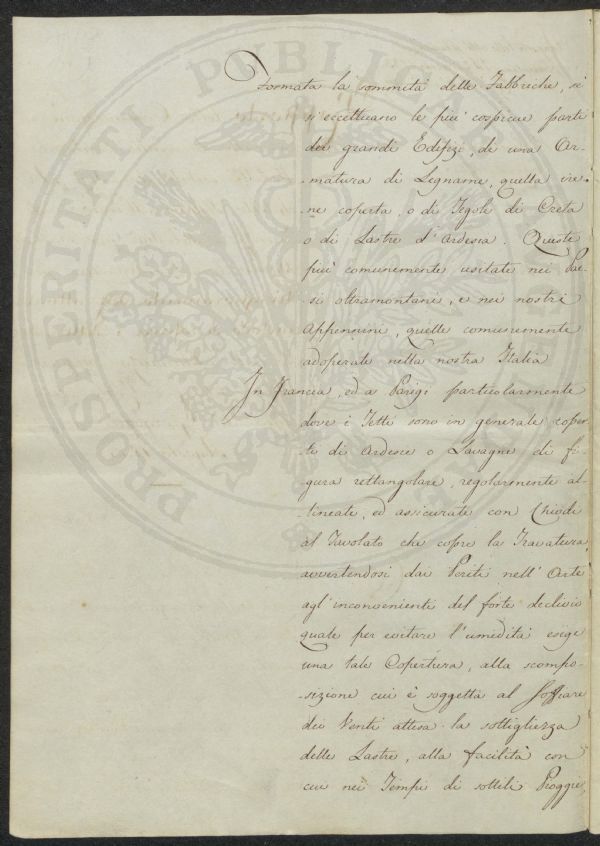 Formata la sommità delle Fabbriche, si
si eccettuano le più cospicue parti
dei grandi Edifizj, di una Ar-
-matura di Legname, quella vie-
ne coperta, o di Tegole di Creta
o di Lastre d'Ardesia. Queste
più comunemente usitate nei Pae-
si oltramontani, e nei nostri
Appennini, quelle comunemente
adoperate nella nostra Italia
In Francia, ed a Parigi particolarmente
dove i Tetti sono in generale coper
ti di Ardesie o Lavagne di fi
gura rettangolare, regolarmente al-
-lineate, ed assicurate con Chiodi
al Tavolato che copre la Travatura,
avvertendosi dai Periti nell'Arte
agl'inconvenienti del forte declivio
quale per evitare l'umidità esige
una tale Copertura, alla scompo-
-sizione cui è soggetta al Soffiare
dei Venti attesa la sottigliezza
delle Lastre, alla facilità con
cui nei Tempi di sottili Pioggie,
PROSPERITATI PUBLICAE